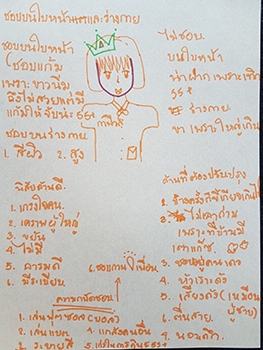 ชอบบนใบหน้าและร่างกาย
ชอบบนใบหน้า
(ชอบแก้ม
เพราะขาวเนียน
ถึงไม่สวยแต่มี
แก้มให้จับนะ 55+
ชอบบนร่างกาย
1. สีผิว 2. สูง
ไม่ชอบ.
บนใบหน้า
หน้าผาก เพราะเถิก
55+
ร่างกาย.
ขา เพราะใหญ่เกิน
นิสัยด้านดี.
1. เกรงใจคน.
2. เคารพผู้ใหญ่
3. ขยัน
4. ไม่มี
5. อารมดี
6. มีระเบียบ
6. ชอบแกล้งเพื่อน
ด้านที่ต้องปรับปรุง
3. ไม่เอาถ่าน
3. ชอบอยู่คนเดียว
4. หัวเราะดัง
5. เสียงดัง (เหมือน
ผู้ชาย)
6. ตื่นสาย.
4. นอนดึก.
ความถนัดชอบ
1. เล่นฟุตซอล (บอล)
2. เล่นแชท
3. ระบายสี
4. แกล้งคนอื่น